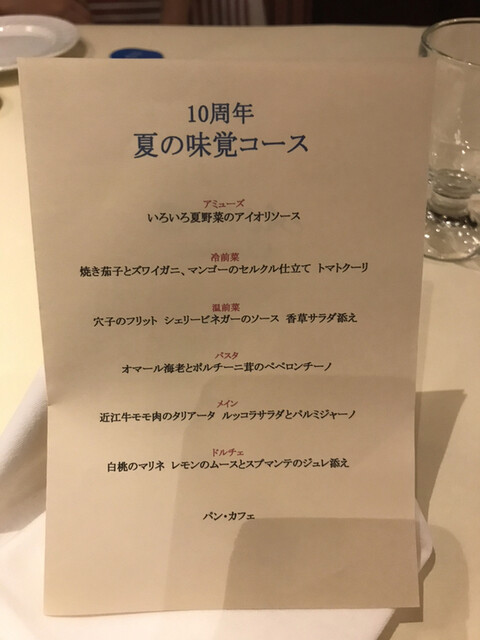 10周年
夏の味覚コース
アミューズ
いろいろ夏野菜のアイオリソース
冷前菜
焼き茄子とズワイガニ、マンゴーのセルクル仕立て トマトクーリ
温前菜
穴子のフリット シェリービネガーのソース 香草サラダ添え
パスタ
オマール海老とポルチーニ茸のペペロンチーノ
メイン
近江牛モモ肉のタリアータ ルッコラサラダとパルミジャーノ
ドルチェ
白桃のマリネ レモンのムースとスプマンテのジュレ添え
パン・カフェ